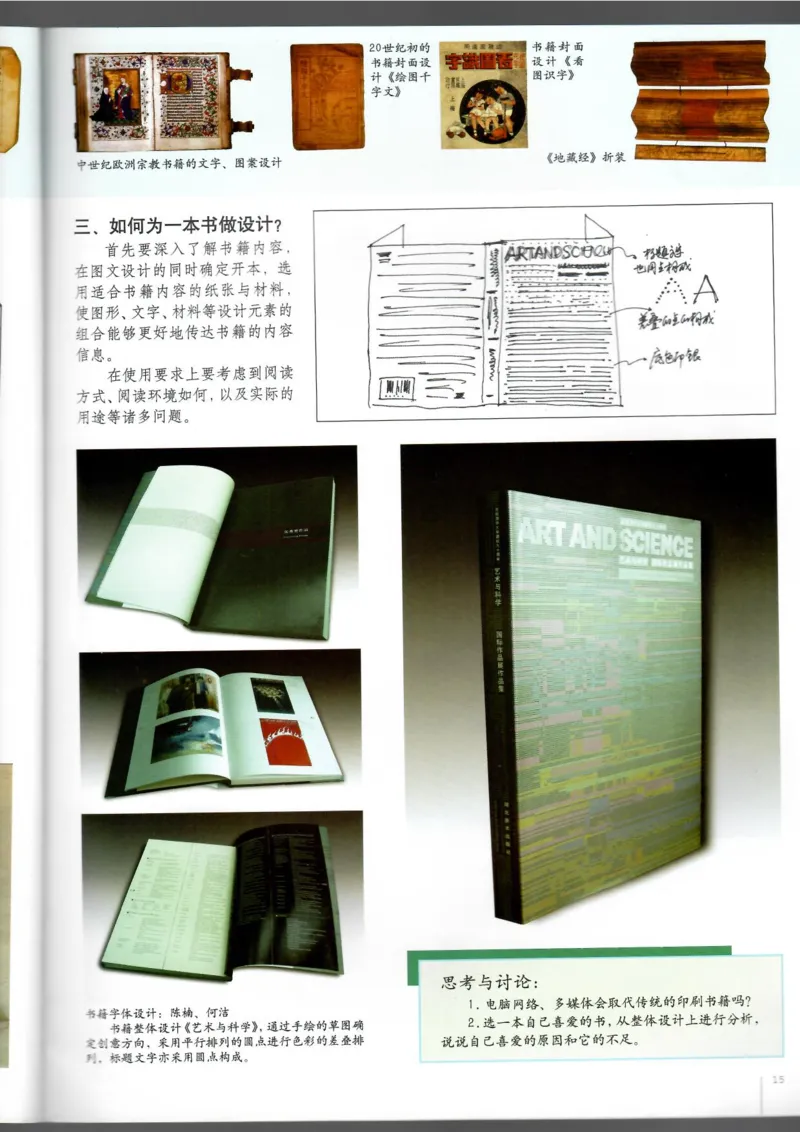 20世纪初的
书籍封面设
计《绘图千
字文》
书籍封面
设计《看
图识字》
中世纪欧洲宗教书籍的文字、图案设计
《地藏经》折装
三、如何为一本书做设计?
首先要深入了解书籍内容,
在图文设计的同时确定开本,选
用适合书籍内容的纸张与材料,
使图形、文字、材料等设计元素的
组合能够更好地传达书籍的内容
信息。
在使用要求上要考虑到阅读
方式、阅读环境如何,以及实际的
用途等诸多问题。
ARTANDSCIENCE
底色印银
ART AND SCIENCE
艺术与科学
国际作品展作品集
书籍字体设计:陈楠、何洁
书籍整体设计《艺术与科学》,通过手绘的草图确
定创意方向,采用平行排列的圆点进行色彩的差叠排
列,标题文字亦采用圆点构成。
思考与讨论:
1.电脑网络、多媒体会取代传统的印刷书籍吗?
2.选一本自己喜爱的书,从整体设计上进行分析,
说说自己喜爱的原因和它的不足。
15